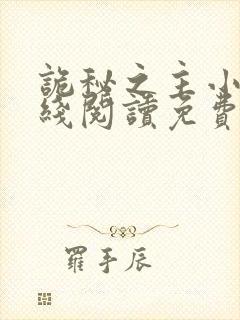 詭秘之主小
綫閱讀免費
羅手辰